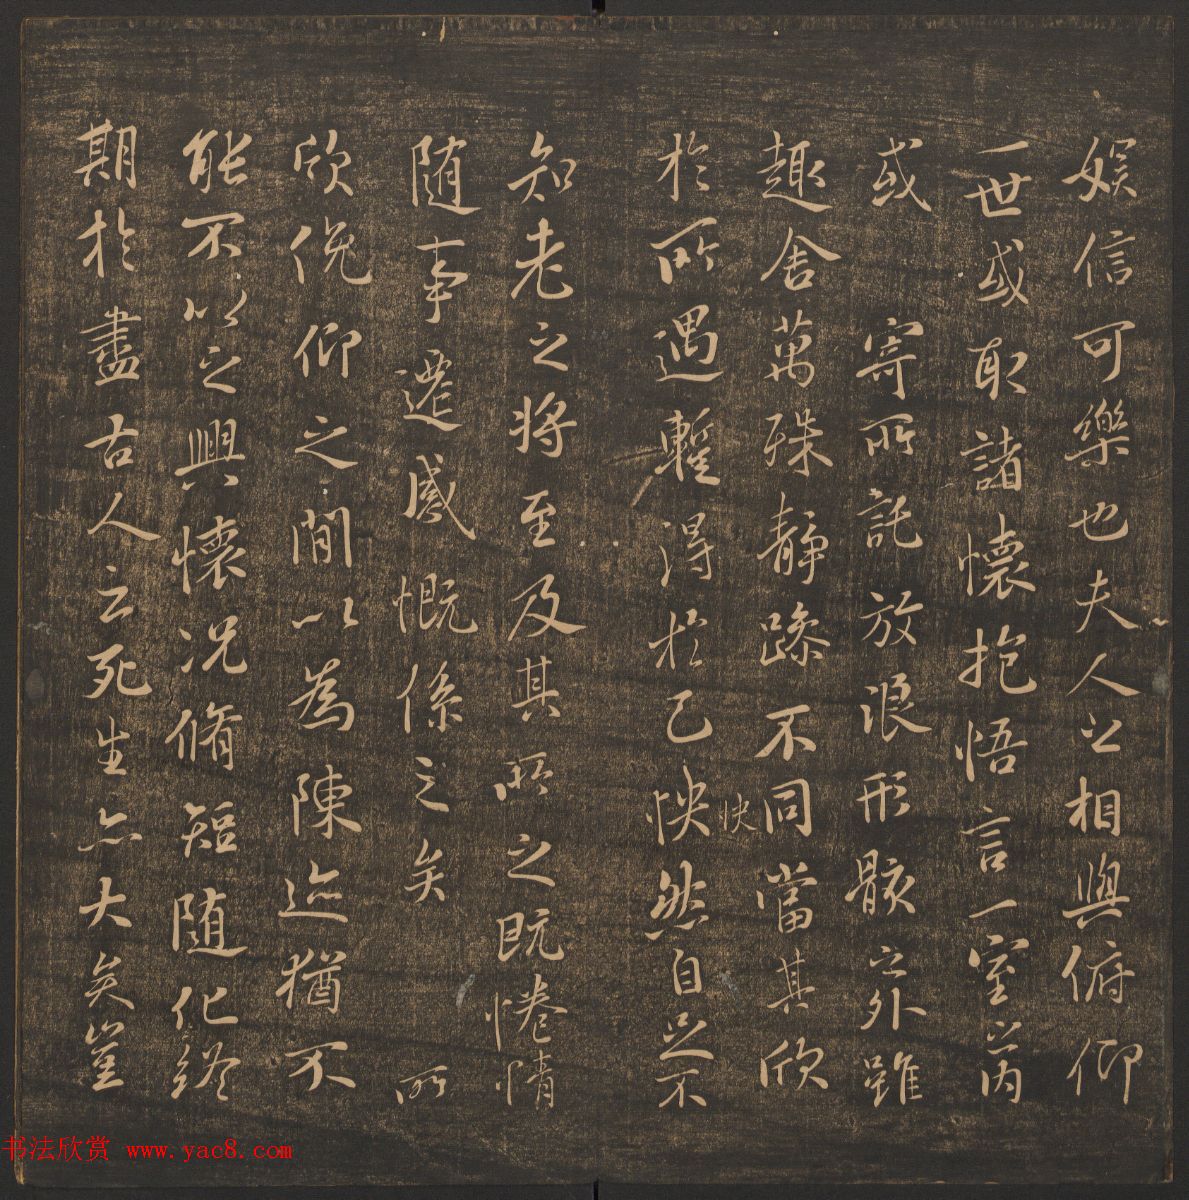 娛信可樂也夫人之相與俯仰
一世或取諸懷抱悟言一室之內
或寄所託放浪形骸之外雖
趣舍萬殊靜躁不同當其欣
於所遇暫得於己怏然自足不
快
知老之將至及其所之既惓情
随事遷感慨係之矣 所
欣俛仰之間以為陳迹猶不
能不以之興懷況脩短随化終
期於盡古人云死生亦大矣豈
书法欣赏 www.yac8.com